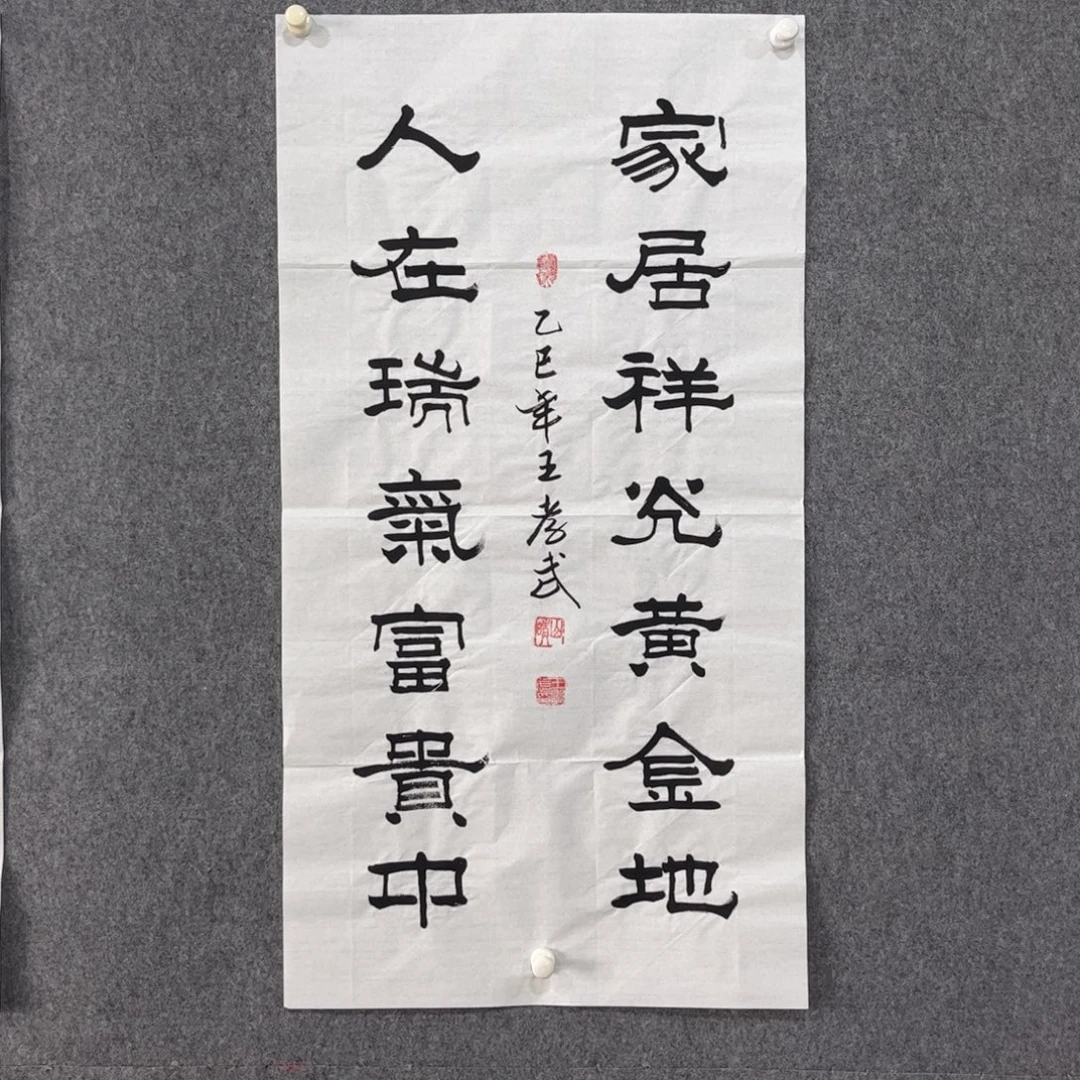 家居祥光黄金地
乙巳年王孝武
人在瑞氣富貴中